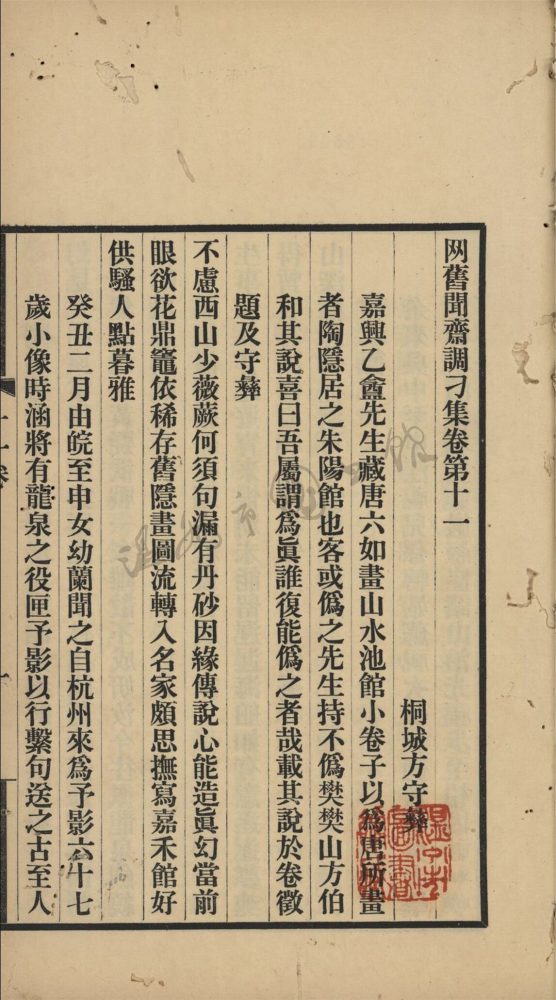 网舊聞齋調刁集卷第十一
桐城方守彝
嘉興乙盦先生藏唐六如畫山水池館小卷子以爲唐所畫
者陶隱居之朱陽館也客或僞之先生持不僞樊樊山方伯
和其說喜曰吾屬謂爲眞誰復能僞之者哉載其說於卷徵
題及守彝
不慮西山少薇蕨何須句漏有丹砂因緣傳說心能造眞幻當前
眼欲花鼎竈依稀存舊隱畫圖流轉入名家頗思撫寫嘉禾館好
供騷人點暮雅
癸丑二月由皖至申女幼蘭聞之自杭州來爲予影六十七
歲小像時涵將有龍泉之役匣予影以行繫句送之古至人
十一卷
一